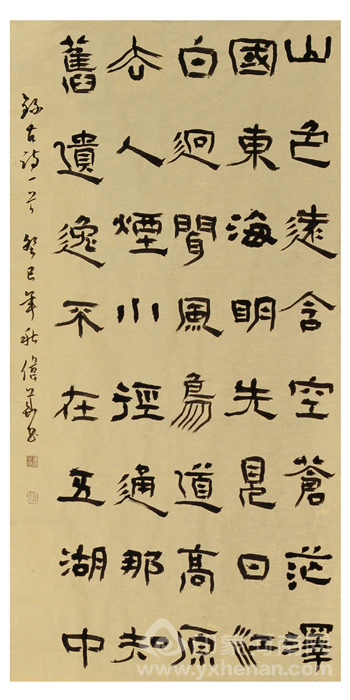 山色遠含空蒼茫澤
國東海明先見日江
白迥聞風鳥道高原
去人煙小徑通那知
舊遺逸不在五湖中
錄古詩一首 癸巳年秋 書
www.yxhenan.com